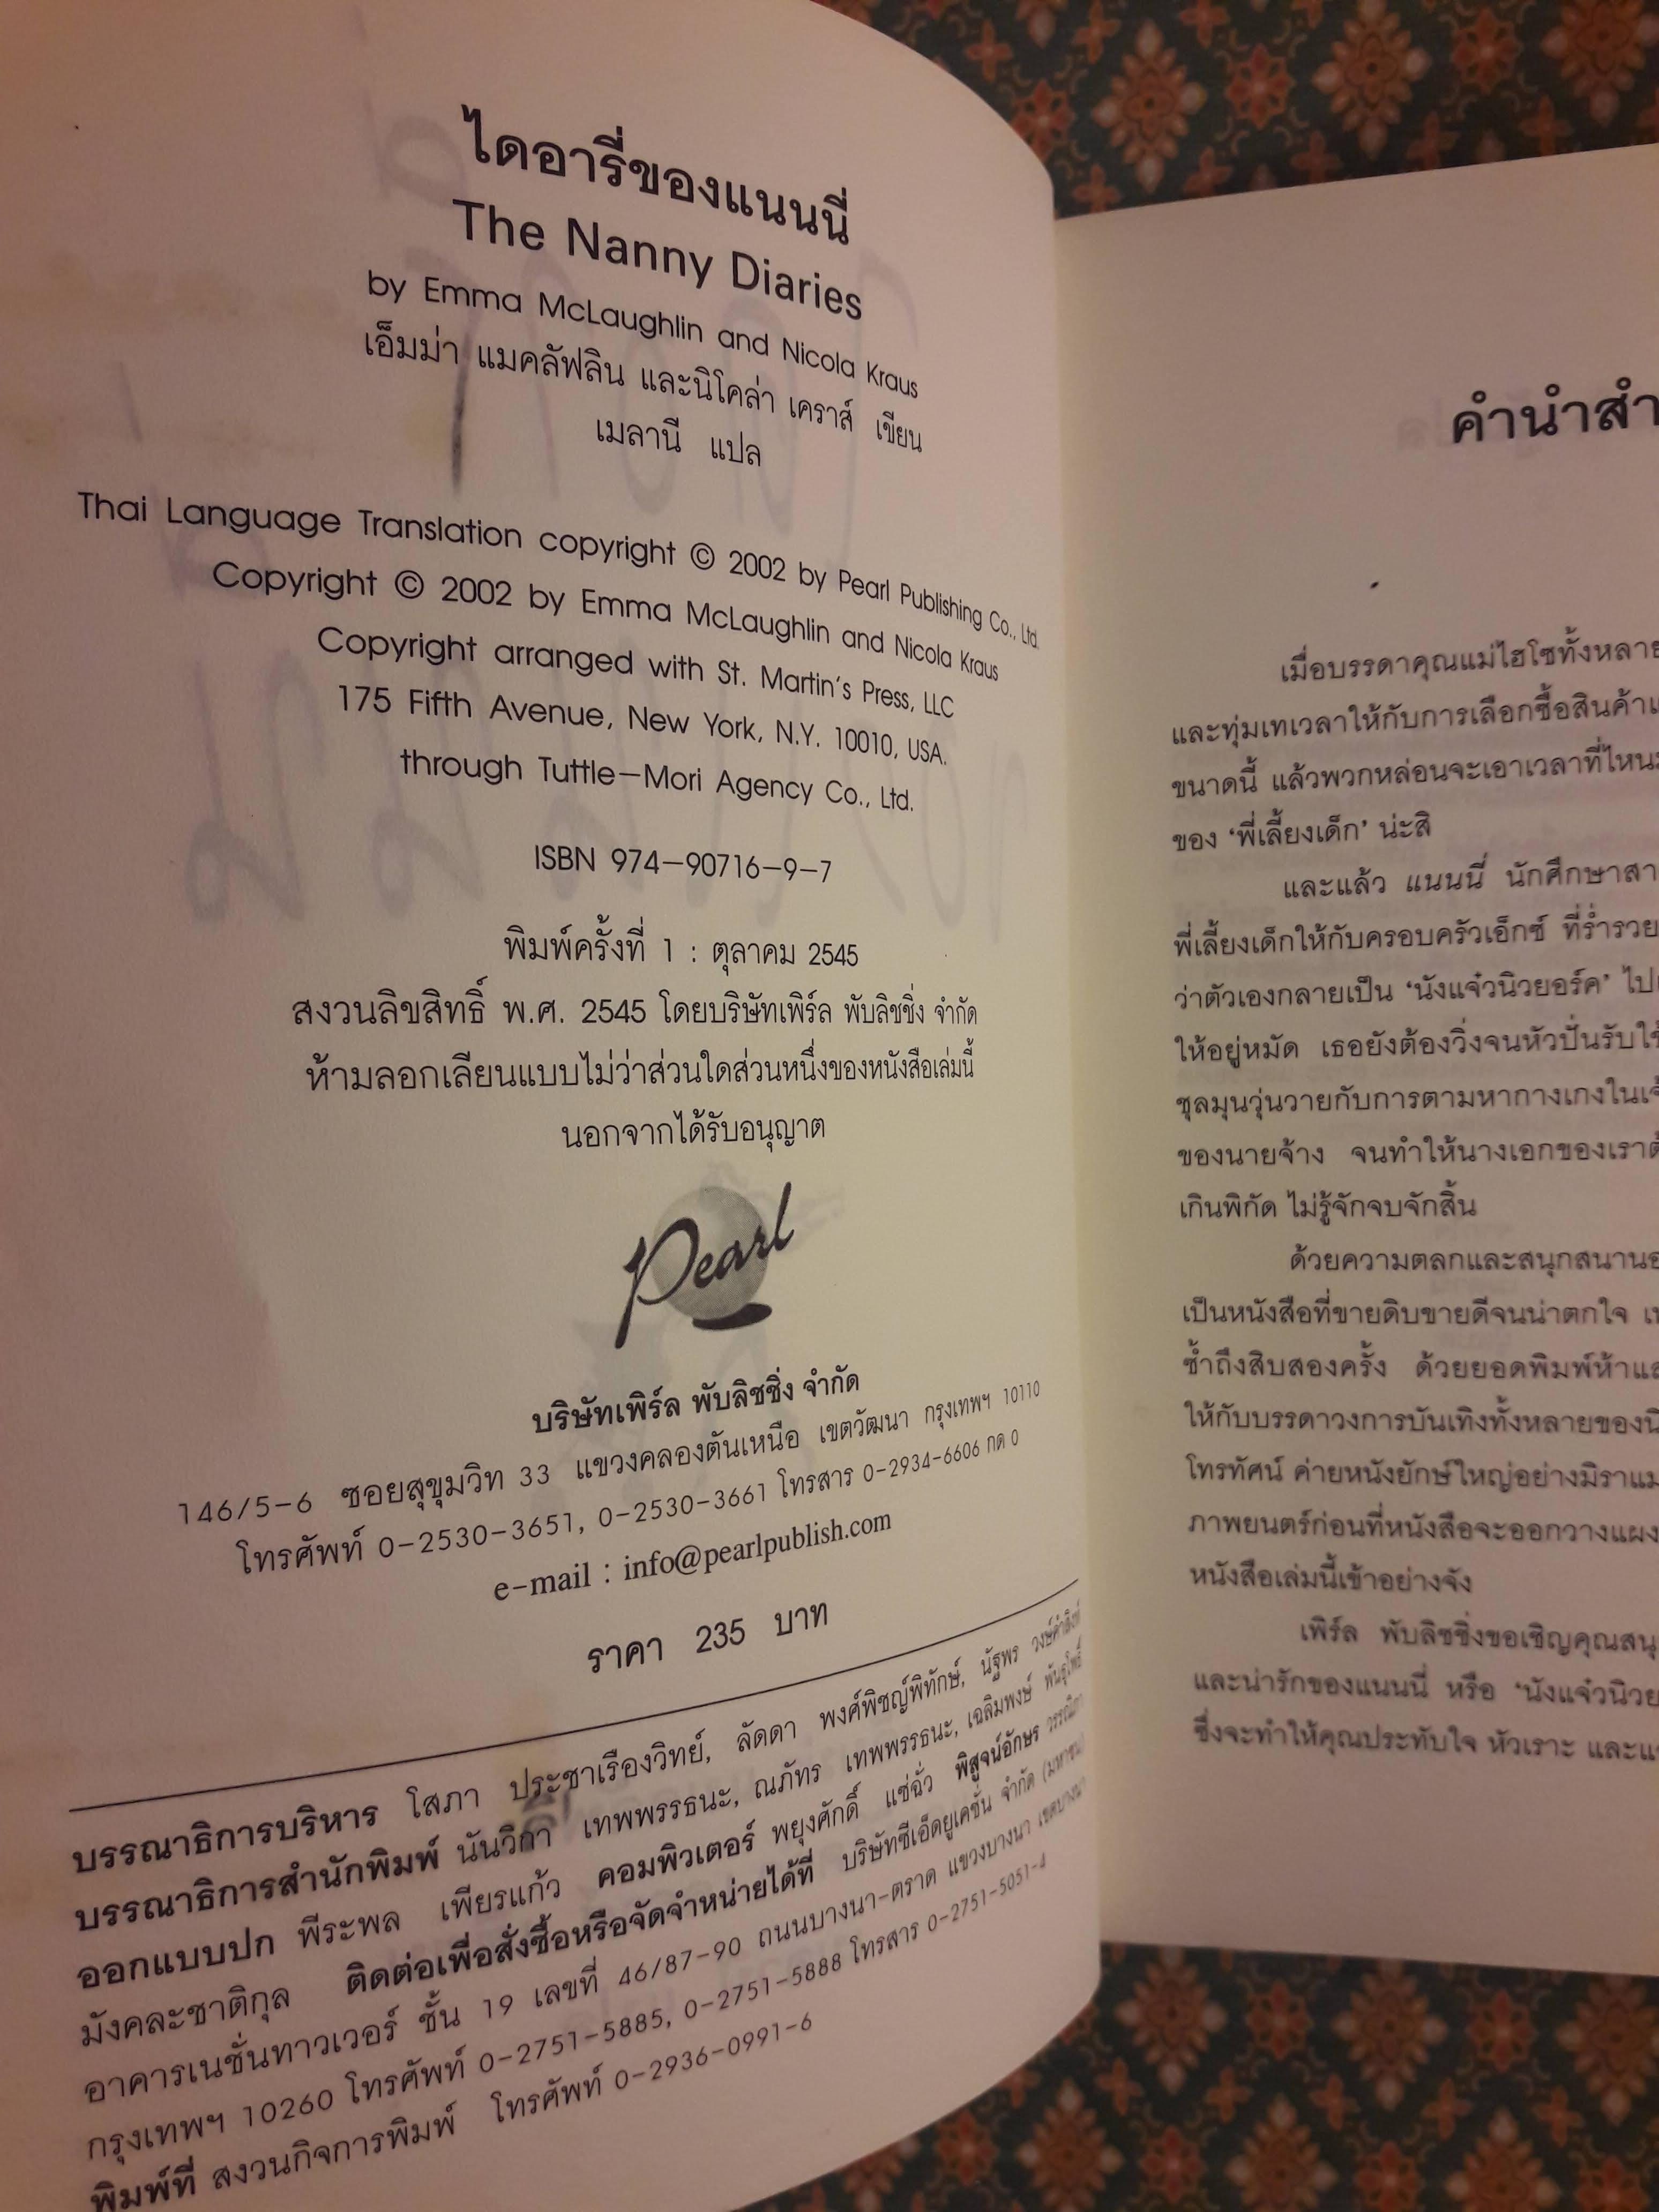 ไดอารี่ของแนนนี่
The Nanny Diaries
by Emma McLaughlin and Nicola Kraus
เอ็มม่า แมคลัฟลิน และนิโคล่า เคราส์ เขียน
เมลานี แปล
Thai Language Translation copyright © 2002 by Pearl Publishing Co., Ltd.
Copyright © 2002 by Emma McLaughlin and Nicola Kraus
Copyright arranged with St. Martin's Press, LLC
175 Fifth Avenue, New York, N.Y. 10010, USA.
through Tuttle–Mori Agency Co., Ltd.
ISBN 974–90716–9–7
พิมพ์ครั้งที่ 1 : ตุลาคม 2545
สงวนลิขสิทธิ์ พ.ศ. 2545 โดยบริษัทเพิร์ล พับลิชชิ่ง จำกัด
ห้ามลอกเลียนแบบไม่ว่าส่วนใดส่วนหนึ่งของหนังสือเล่มนี้
นอกจากได้รับอนุญาต
Pearl
บริษัทเพิร์ล พับลิชชิ่ง จำกัด
146/5–6 ซอยสุขุมวิท 33 แขวงคลองตันเหนือ เขตวัฒนา กรุงเทพฯ 10110
โทรศัพท์ 0–2530–3651, 0–2530–3661 โทรสาร 0–2934–6606 กด 0
e–mail : info@pearlpublish.com
ราคา 235 บาท
บรรณาธิการบริหาร โสภา ประชาเรืองวิทย์, ลัดดา พงศ์พิชญ์พิทักษ์, นัฐพร วงษ์คำสิงห์
บรรณาธิการสำนักพิมพ์ นันวิภา เทพพรรธนะ, ณภัทร เทพพรรธนะ, เฉลิมพงษ์ พันธุโพธิ์
ออกแบบปก พีระพล เพียรแก้ว คอมพิวเตอร์ พยุงศักดิ์ แซ่ฉั่ว พิสูจน์อักษร วรรณิภา
มังคละชาติกุล ติดต่อเพื่อสั่งซื้อหรือจัดจำหน่ายได้ที่ บริษัทซีเอ็ดยูเคชั่น จำกัด (มหาชน)
อาคารเนชั่นทาวเวอร์ ชั้น 19 เลขที่ 46/87–90 ถนนบางนา–ตราด แขวงบางนา เขตบางนา
กรุงเทพฯ 10260 โทรศัพท์ 0–2751–5885, 0–2751–5888 โทรสาร 0–2751–5051–4
พิมพ์ที่ สงวนกิจการพิมพ์ โทรศัพท์ 0–2936–0991–6
คำนำสำ
เมื่อบรรดาคุณแม่ไฮโซทั้งหลาย
และทุ่มเทเวลาให้กับการเลือกซื้อสินค้าแ
ขนาดนี้ แล้วพวกหล่อนจะเอาเวลาที่ไหน
ของ ‘พี่เลี้ยงเด็ก’ น่ะสิ
และแล้ว แนนนี่ นักศึกษาสา
พี่เลี้ยงเด็กให้กับครอบครัวเอ็กซ์ ที่ร่ำรวย
ว่าตัวเองกลายเป็น ‘นังแจ๋วนิวยอร์ค’ ไป
ให้อยู่หมัด เธอยังต้องวิ่งจนหัวปั่นรับใช้
ชุลมุนวุ่นวายกับการตามหากางเกงในเจ้
ของนายจ้าง จนทำให้นางเอกของเราต้
เกินพิกัด ไม่รู้จักจบจักสิ้น
ด้วยความตลกและสนุกสนาน
เป็นหนังสือที่ขายดิบขายดีจนน่าตกใจ
ซ้ำถึงสิบสองครั้ง ด้วยยอดพิมพ์ห้าแ
ให้กับบรรดาวงการบันเทิงทั้งหลายของนิ
โทรทัศน์ ค่ายหนังยักษ์ใหญ่อย่างมิราแม
ภาพยนตร์ก่อนที่หนังสือจะออกวางแผง
หนังสือเล่มนี้เข้าอย่างจัง
เพิร์ล พับลิชชิ่งขอเชิญคุณสนุ
และน่ารักของแนนนี่ หรือ ‘นังแจ๋วนิวย
ซึ่งจะทำให้คุณประทับใจ หัวเราะ และแ